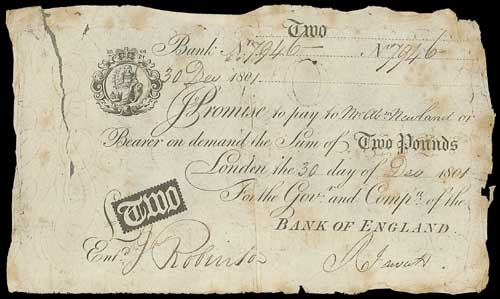 Two
Bank No 7946 No 7946
30 Dec 1801
I Promise to pay to Mr. Abm. Newland or
Bearer on demand the Sum of Two Pounds
London the 30 day of Dec 1801
For the Govr. and Compa. of the
BANK OF ENGLAND.
£Two
Entd. Robinson